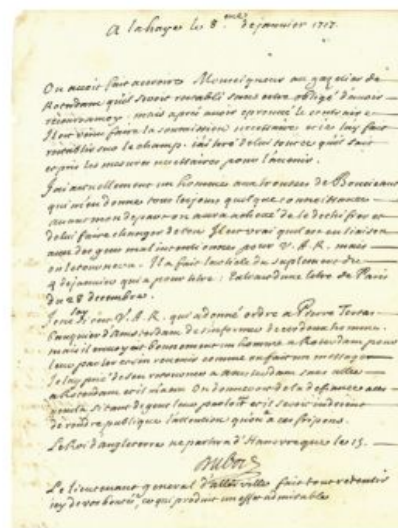 A la haye le 8.me de janvier 1717.
On avoit fait accroire Monseigneur au gazetier de
Roterdam qu'il seroit retabli sans estre obligé d'avoir
recours a moy, mais après avoir eprouvé le contraire
Il est venu faire la soumission necessaire et je l'ay fait
retablir sur le champ. J'ai tiré de lui tout ce qu'il sait
et pris les mesures necessaires pour l'avenir.
J'ai actuellement un homme aux trousses de
qui m'en donne tous les jours quelque connoissance
avant mon depart on aura achevé de le dechifrer et
de lui faire changer de ton. Il est vrai qu'il est en liaison
avec des gens mal intentionnés pour V. A. R. mais
on le tournera. Il a fait l'article du suplement du
4 de janvier qui a pour titre: Extrait d'une lettre de Paris
du 28 decembre.
V. A. R. qui a donné ordre a Pierre Testas
banquier d'Amsterdam de s'informer de ces deux hommes.
mais il envoyoit bonnement un homme a Roterdam pour
leur parler et s'en revenir comme on fait un messager
Je l'ay prié de s'en retourner a Amsterdam sans aller
a Roterdam et il m'a On donneroit de la defiance a ces
gens la si tant de gens leur parloit et il seroit indecent
de rendre publique l'attention qu'on a a ces fripons.
Le Roi d'Angleterre ne partira d'Hanovre que les 15.
Dubois
Le lieutenant general fait tout retentir
icy de vos bontés, ce qui produit un effet admirable